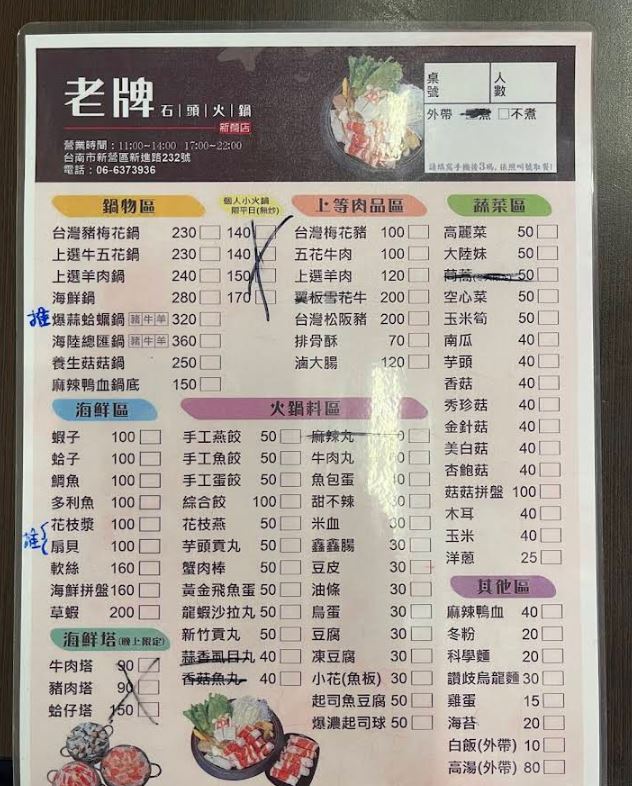 老牌 石|頭|火|鍋
新營店
營業時間：11:00~14:00 17:00~22:00
台南市新營區新進路232號
電話：06-6373936
桌號
人數
外帶 煮 □不煮
請填寫手機後3碼，依照叫號取餐!
鍋物區
個人小火鍋
限平日(無炒)
台灣豬梅花鍋 230 □ 140
上選牛五花鍋 230 □ 140
上選羊肉鍋 240 □ 150
海鮮鍋 280 □ 170
推 爆蒜蛤蠣鍋 豬 牛 羊 320 □
海陸總匯鍋 豬 牛 羊 360 □
養生菇菇鍋 250 □
麻辣鴨血鍋底 150 □
上等肉品區
台灣梅花豬 100 □
五花牛肉 100 □
上選羊肉 120 □
翼板雪花牛 200 □
台灣松阪豬 200 □
排骨酥 70 □
滷大腸 120 □
蔬菜區
高麗菜 50 □
大陸妹 50 □
茼蒿 50 □
空心菜 50 □
玉米筍 50 □
南瓜 40 □
芋頭 40 □
香菇 40 □
秀珍菇 40 □
金針菇 40 □
美白菇 40 □
杏鮑菇 40 □
菇菇拼盤 100 □
木耳 40 □
玉米 40 □
洋蔥 25 □
海鮮區
蝦子 100 □
蛤子 100 □
鯛魚 100 □
多利魚 100 □
推
花枝漿 100 □
扇貝 100 □
軟絲 160 □
海鮮拼盤 160 □
草蝦 200 □
海鮮塔(晚上限定)
牛肉塔 90 □
豬肉塔 90 □
蛤仔塔 150 □
火鍋料區
手工燕餃 50 □
手工魚餃 50 □
手工蛋餃 50 □
綜合餃 100 □
花枝燕 50 □
芋頭貢丸 50 □
蟹肉棒 50 □
黃金飛魚蛋 50 □
龍蝦沙拉丸 50 □
新竹貢丸 50 □
蒜香虱目丸 40 □
香菇魚丸 40 □
麻辣丸 □
牛肉丸 □
魚包蛋 □
甜不辣 30 □
米血 30 □
鑫鑫腸 30 □
豆皮 30 □
油條 30 □
鳥蛋 30 □
豆腐 30 □
凍豆腐 30 □
小花(魚板) 30 □
起司魚豆腐 50 □
爆濃起司球 50 □
其他區
麻辣鴨血 40 □
冬粉 20 □
科學麵 20 □
讚歧烏龍麵 30 □
雞蛋 15 □
海苔 20 □
白飯(外帶) 10 □
高湯(外帶) 80 □